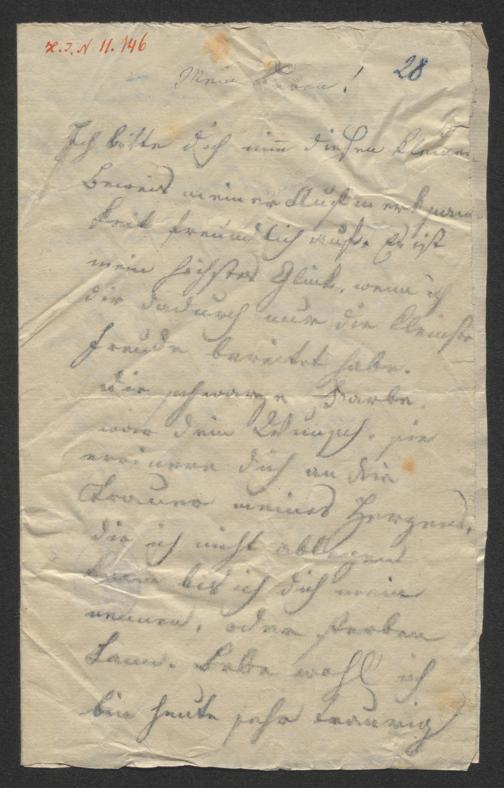 H.I.N 11.146
28
Mein Leben!
Ich bitte dich nim diesen kleinen
Beweis meiner Aufmerksam
keit freundlich auf. Es ist
mein höchstes Glück, wenn ich
dir dadurch nur die kleinste
Freude bereitet habe.
Die schwarze Farbe
war dein Wunsch, sie
erinnere dich an die
Trauer meines Herzens,
die ich nicht ablegen
kann bis ich dich mein
nennen, oder sterben
kann. Lebe wohl ich
bin heute sehr traurig